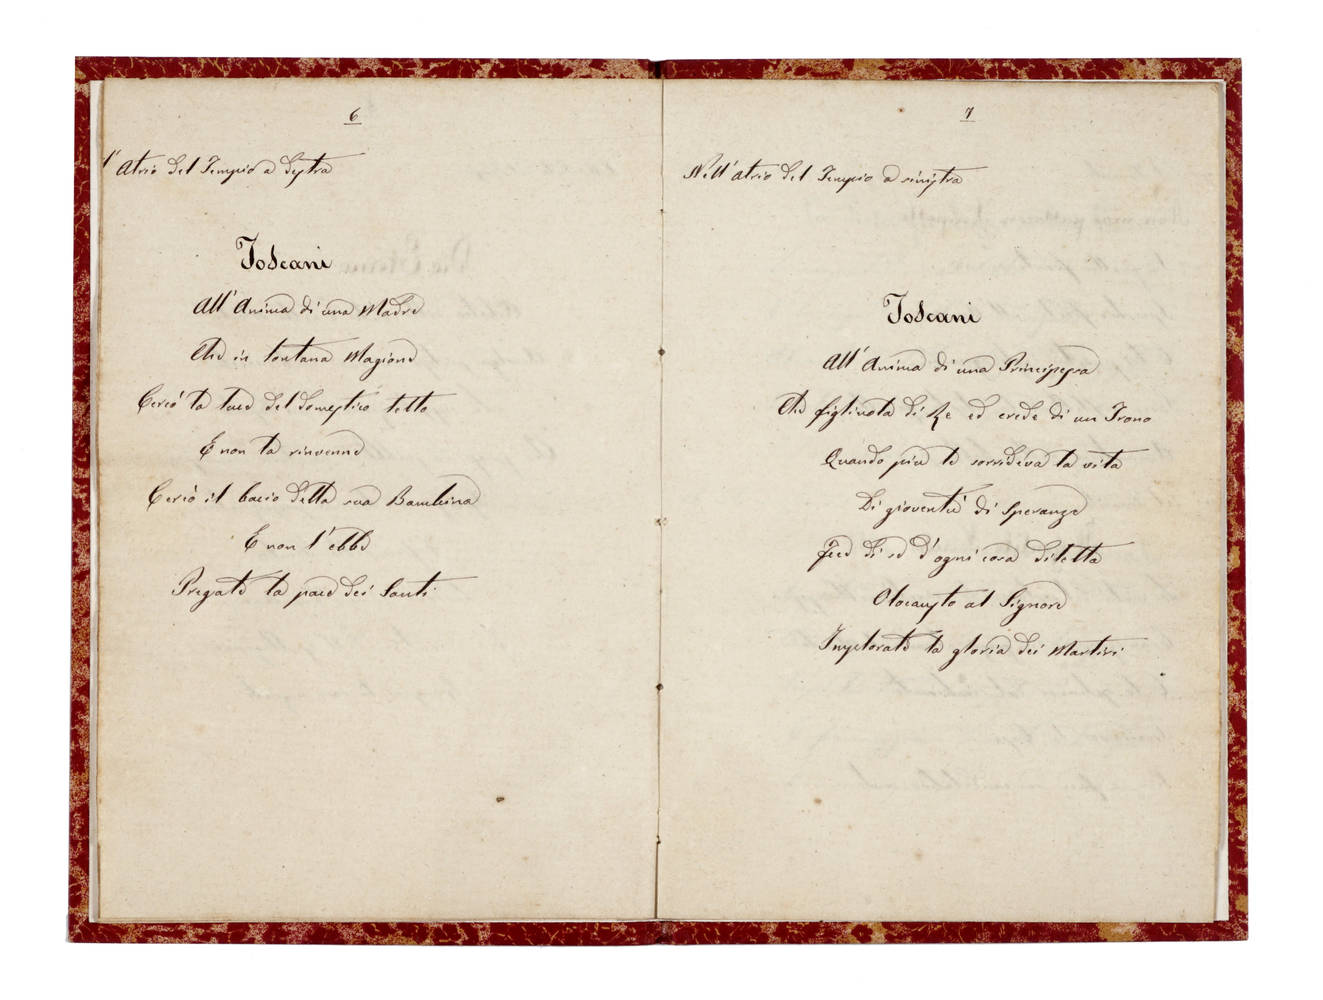 6
l'atrio del Tempio a destra
Toscani
All'Anima di una Madre
Che in lontana Magione
Cercò la luce del domestico tetto
E non la rinvenne
Cercò il bacio della sua Bambina
E non l'ebbe
Pregate la pace dei Santi
7
Nell'atrio del Tempio a sinistra
Toscani
All'Anima di una Principessa
Che figliuola di Re ed erede di un Trono
Quando più le sorrideva la vita
Di gioventù di speranze
Fece di se d'ogni cosa diletta
Olocausto al Signore
Implorate la gloria dei Martiri